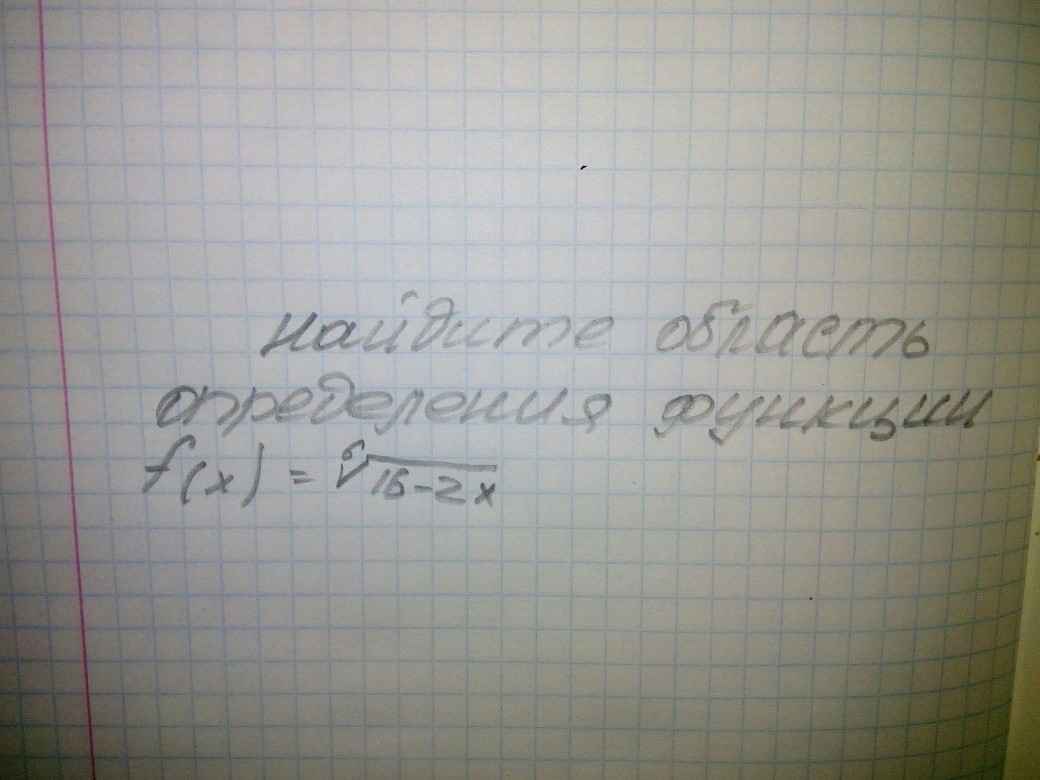 найдите область
определения функции
f(x) = ⁶√16-2x